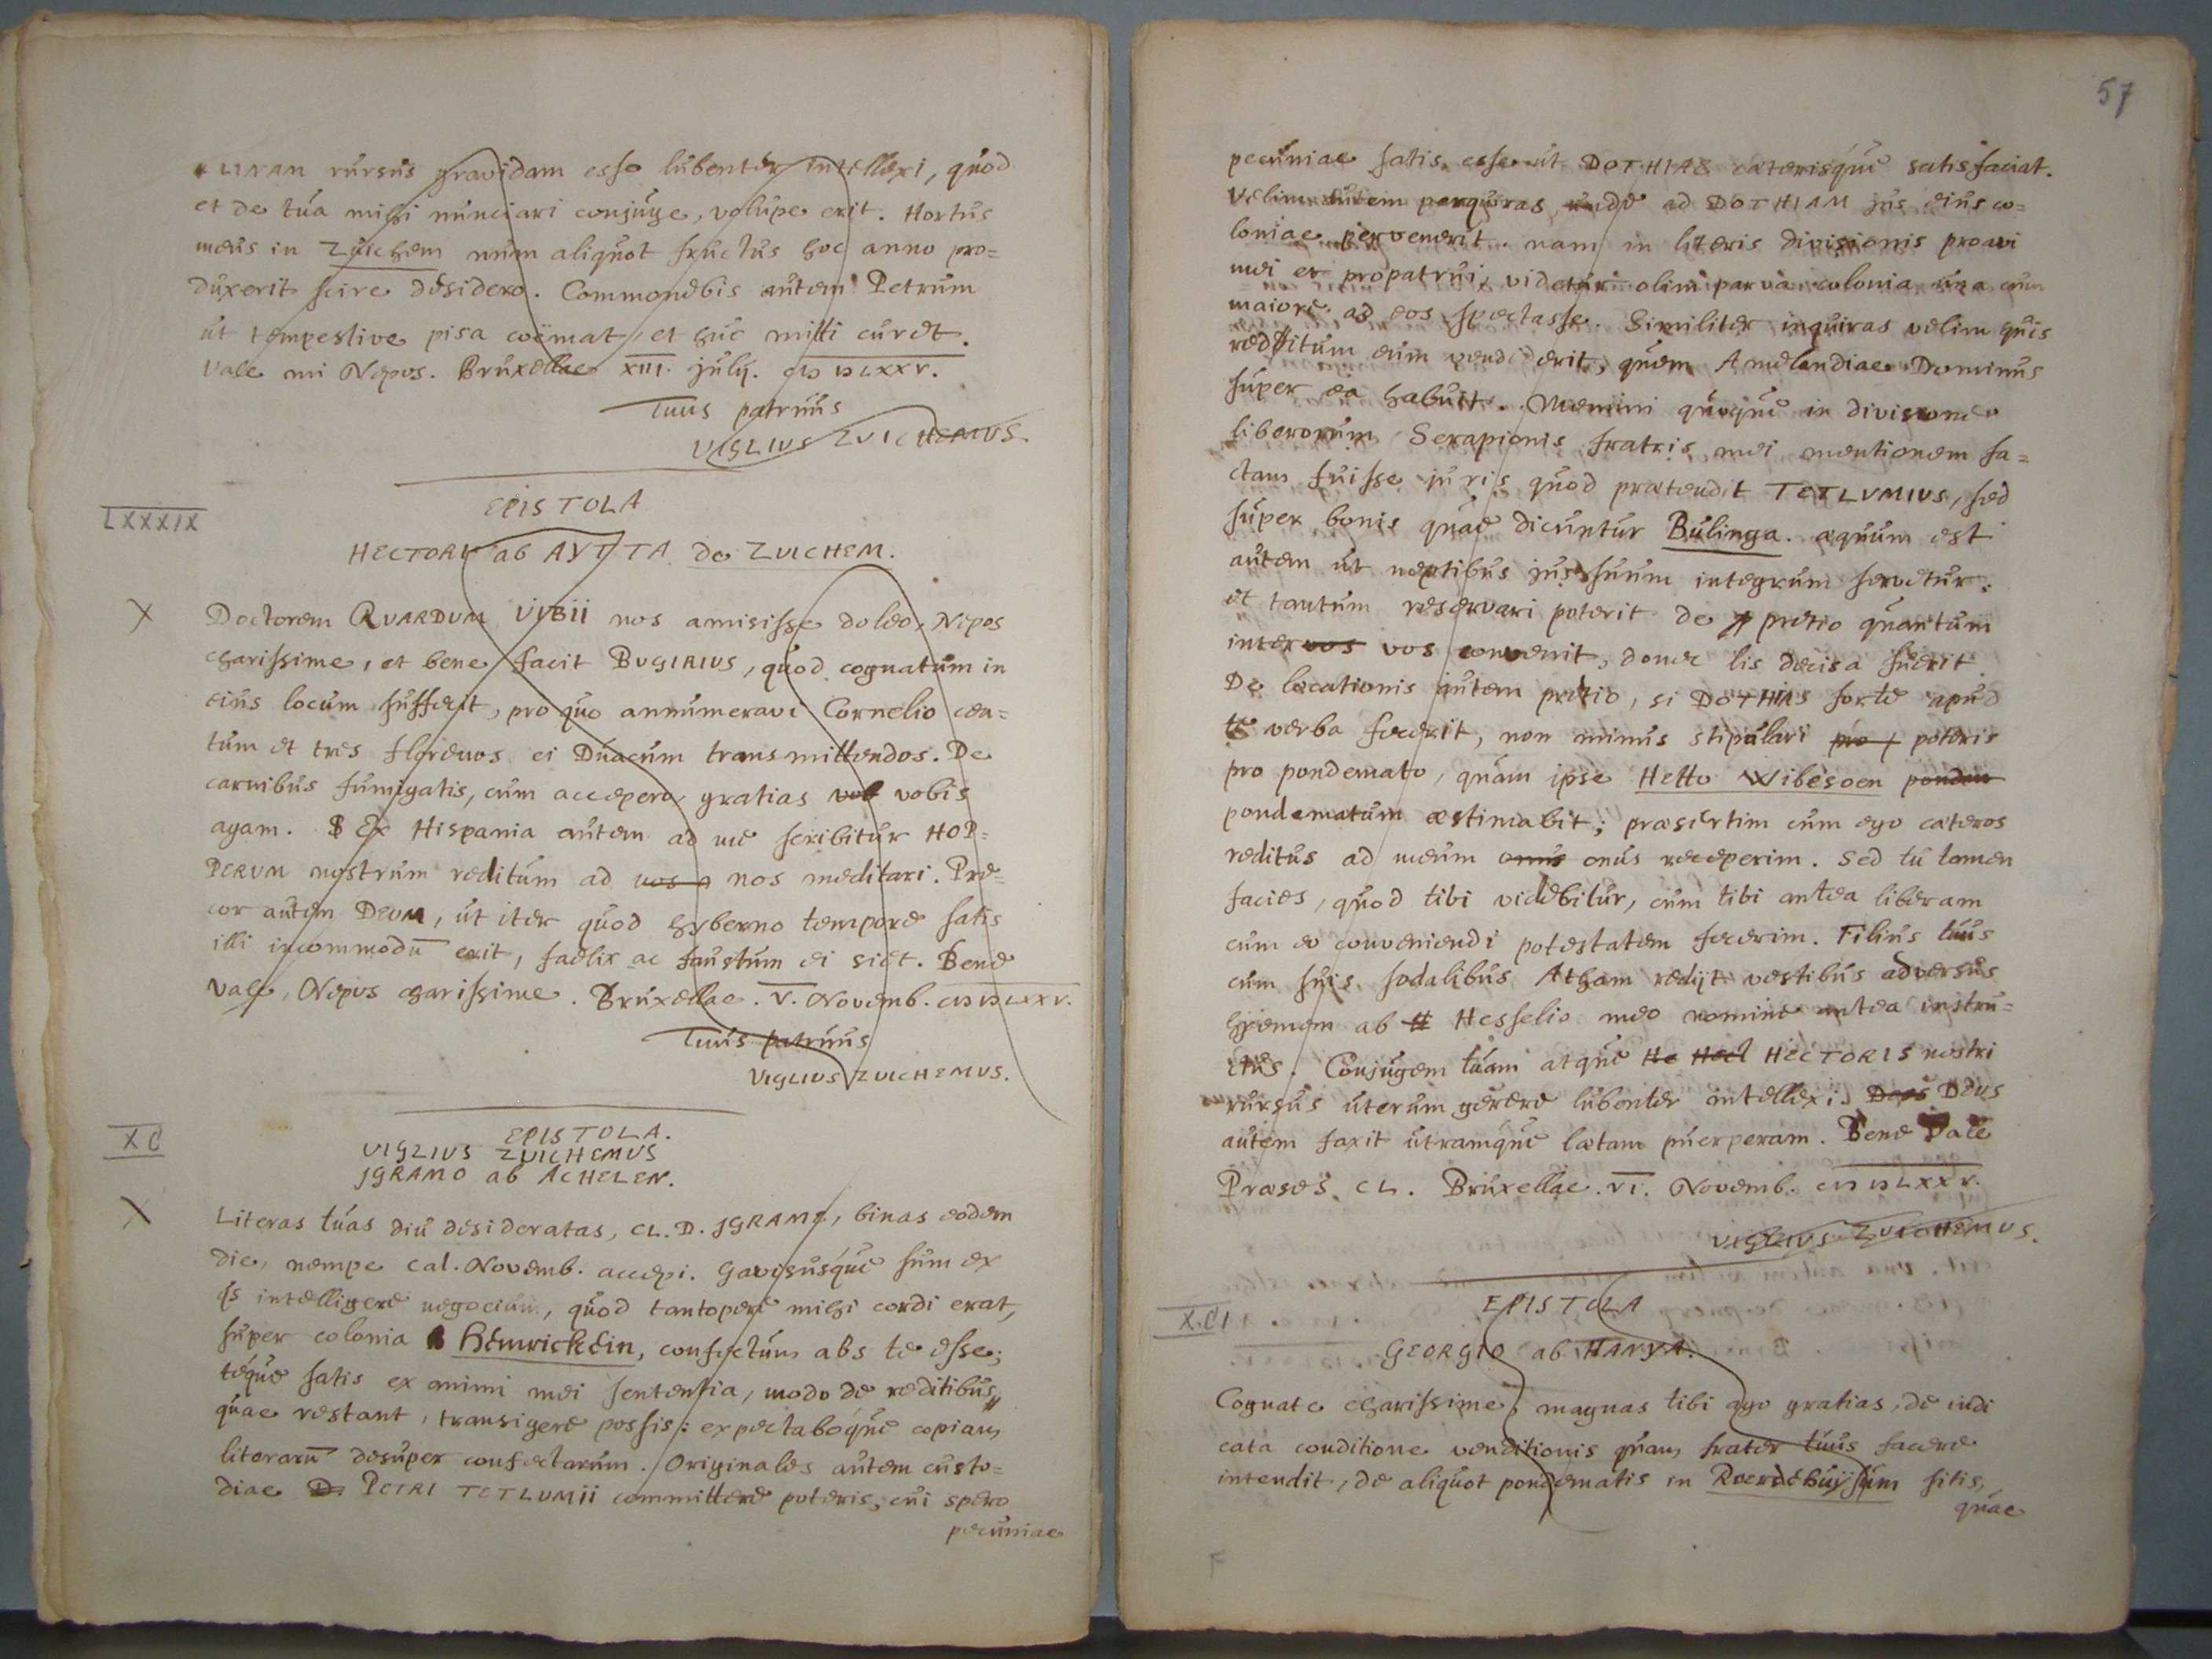 rursus gravidam esse lubenter intellexi, quod
et de tua mihi nunciari conjuge, volupe erit. Hortus
meus in Zuichem num aliquot fructus hoc anno pro=
duxerit scire desidero. Commonebis autem Petrum
ut tempestive pisa coëmat, et huc mitti curet.
Vale mi Nepos. Bruxellae XIII. julij. CIƆ IƆ LXXV.
Tuus patruus
VIGLIUS ZVICHEMVS.
LXXXIX
EPISTOLA
HECTORI ab AYTTA de ZUICHEM.
X
Doctorem RUARDUM VYBII nos amisisse doleo, Nepos
charissime, et bene facit BUGIRIUS, quod cognatum in
eius locum suffecit, pro quo annumeravi Cornelio cen=
tum et tres florenos ei Duacum transmittendos. De
carnibus fumigatis, cum accepero, gratias vob vobis
agam. Ex Hispania autem ad me scribitur HOP=
PERUM nostrum reditum ad vos nos meditari. Pre=
cor autem DEUM, ut iter quod hyberno tempore satis
illi incommodū erit, faelix ac faustum ei siet. Bene
vale, Nepos charissime. Bruxellae. V. Novemb. CIƆ IƆ LXXV.
Tuus patruus
VIGLIUS ZUICHEMVS.
XC
EPISTOLA.
VIGLIUS ZUICHEMUS
JGRAMO ab ACHELEN.
X
Literas tuas diu desideratas, CL. D. JGRAME, binas eodem
die, nempe Cal. Novemb. accepi. Gavisusque sum ex
ijs intelligere negocium, quod tantopere mihi cordi erat,
super colonia Heinrickein, confectum abs te esse;
teque satis ex animi mei sententia, modo de reditibus,
quae restant, transigere possis: expectaboque copiam
literarū desuper confectarum. Originales autem custo=
diae D. PETRI TETLUMii committere poteris, cui spero
pecuniae
57
pecuniae satis esse ut DOTHIAE caeterisque satisfaciat.
Velim autem perquiras, unde ad DOTHIAM jus eius co=
loniae pervenerit. nam in literis divisionis proavi
mei et propatrui, videtur olim parva colonia una cum
maiore ad eos spectasse. Similiter inquiras velim quis
redditum eum vendiderit, quem Amelandiae Dominus
super ea habuit. Memini quoque in divisione
liberorum Serapionis fratris mei mentionem fa=
ctam fuisse juris quod praetendit TETLVMIUS, sed
super bonis quae dicuntur Bulinga. aequum est
autem ut neptibus jus suum integrum servetur:
et tantum reservari poterit de pretio quantum
inter vos vos convenit, donec lis decisa fuerit.
De locationis autem pretio, si DOTHIAS forte apud
te verba fecerit, non minus stipulari pro poteris
pro pondemato, quam ipse Hetto Wibesoen pondem
pondematum aestimabit; praesertim cum ego caeteros
reditus ad meum onus onus receperim. Sed tu tamen
facies, quod tibi videbitur, cum tibi antea liberam
cum eo conveniendi potestatem fecerim. Filius tuus
cum suis sodalibus Atham redijt vestibus adversus
hyemem ab H Hesselio meo nomine antea instru=
ctus. Conjugem tuam atque He Hect HECTORIS nostri
rursus uterum gerere lubenter intellexi. Deus DEUS
autem faxit utramque laetam puerperam. Bene Vale
Praeses CL. Bruxellae. VI. Novemb. CIƆ IƆ LXXV.
VIGLIUS ZUICHEMUS.
XCI
EPISTOLA
GEORGIO ab HANYA.
Cognate charissime, magnas tibi ago gratias, de indi
cata conditione venditionis quam frater tuus facere
intendit, de aliquot pondematis in Roerdehuysum sitis,
quae
F